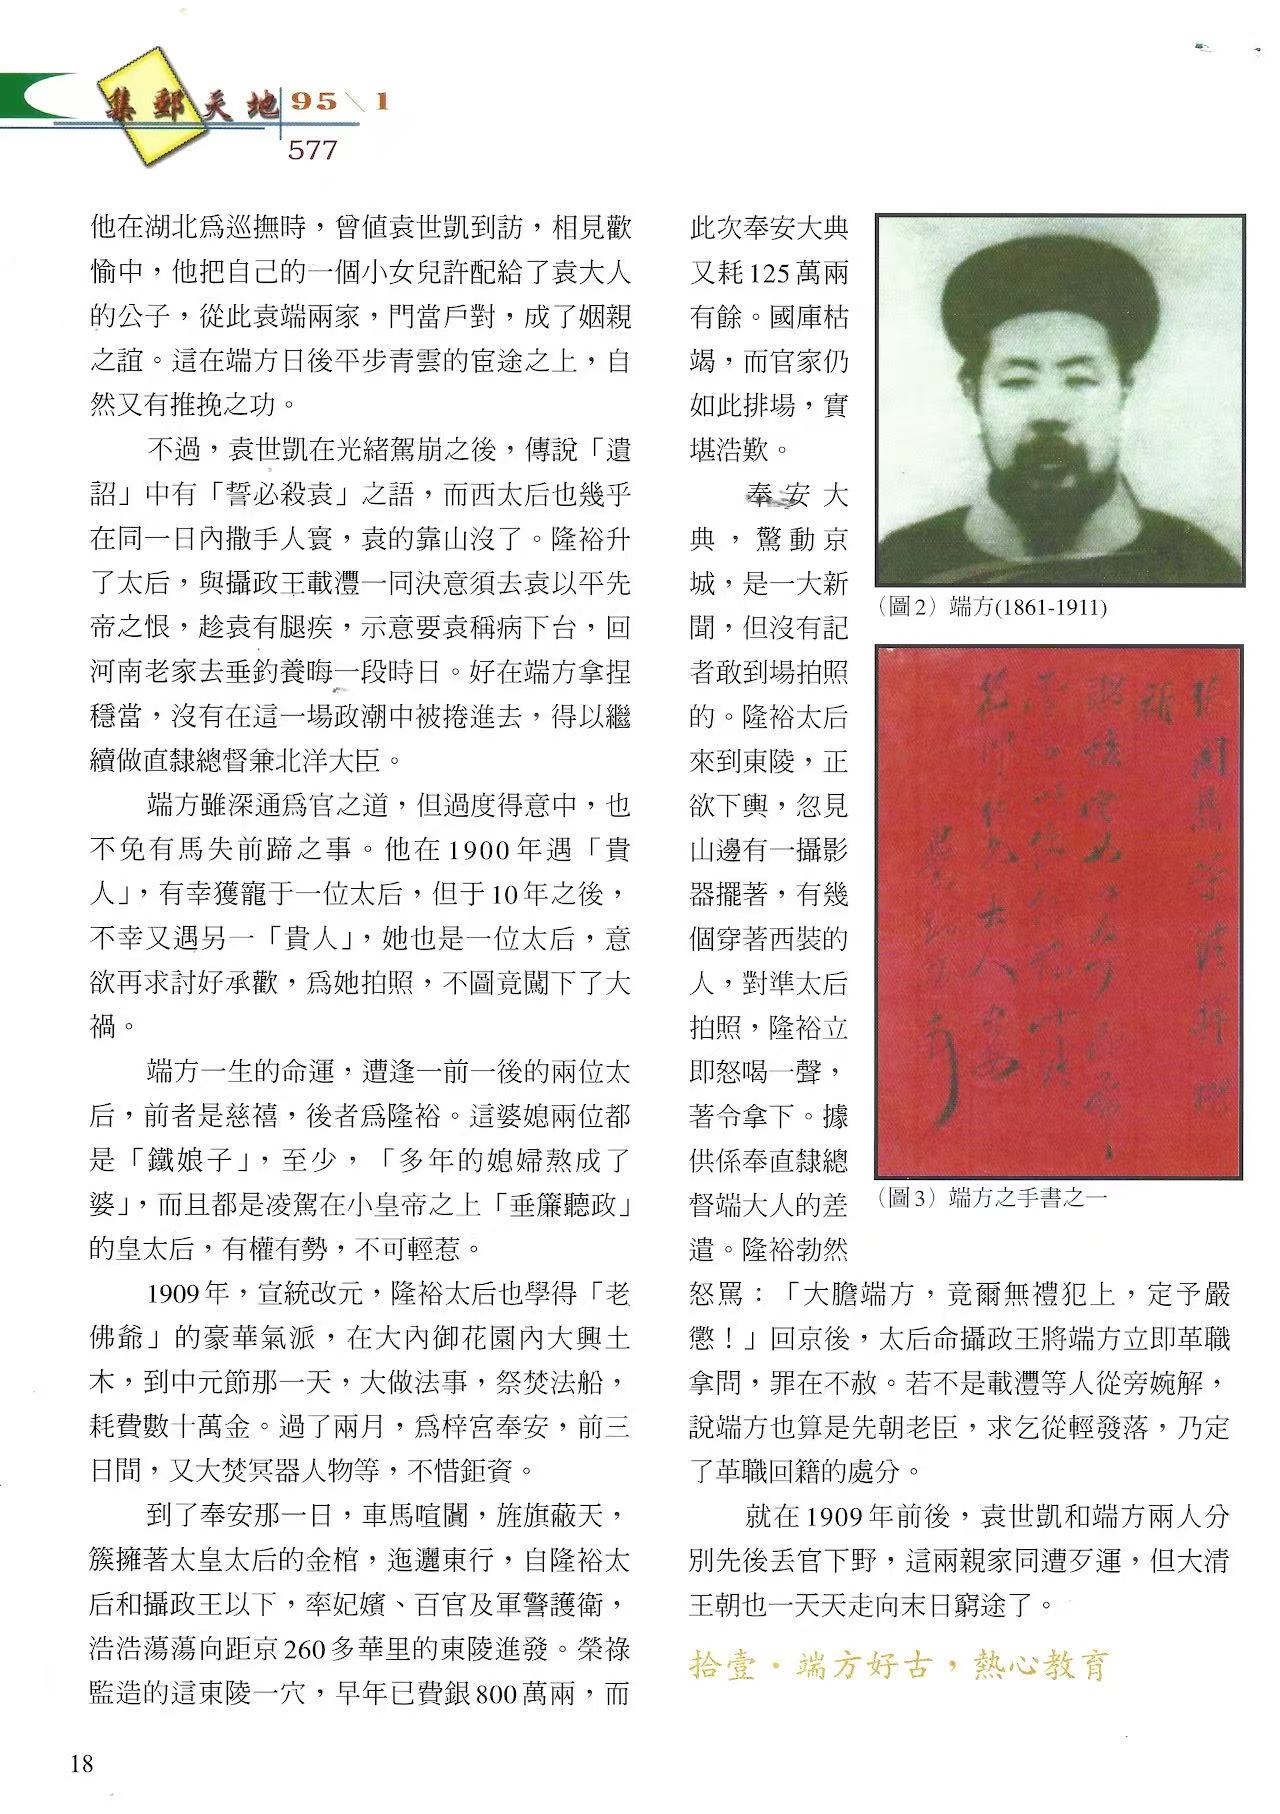 集郵天地
95\1
577
他在湖北爲巡撫時，曾值袁世凱到訪，相見歡
愉中，他把自己的一個小女兒許配給了袁大人
的公子，從此袁端兩家，門當戶對，成了姻親
之誼。這在端方日後平步青雲的宦途之上，自
然又有推挽之功。
不過，袁世凱在光緒駕崩之後，傳說「遺
詔」中有「誓必殺袁」之語，而西太后也幾乎
在同一日內撒手人寰，袁的靠山沒了。隆裕升
了太后，與攝政王載灃一同決意須去袁以平先
帝之恨，趁袁有腿疾，示意要袁稱病下台，回
河南老家去垂釣養晦一段時日。好在端方拿捏
穩當，沒有在這一場政潮中被捲進去，得以繼
續做直隸總督兼北洋大臣。
端方雖深通爲官之道，但過度得意中，也
不免有馬失前蹄之事。他在1900年遇「貴
人」，有幸獲寵于一位太后，但于10年之後，
不幸又遇另一「貴人」，她也是一位太后，意
欲再求討好承歡，爲她拍照，不圖竟闖下了大
禍。
端方一生的命運，遭逢一前一後的兩位太
后，前者是慈禧，後者爲隆裕。這婆媳兩位都
是「鐵娘子」，至少，「多年的媳婦熬成了
婆」，而且都是凌駕在小皇帝之上「垂簾聽政」
的皇太后，有權有勢，不可輕惹。
1909年，宣統改元，隆裕太后也學得「老
佛爺」的豪華氣派，在大內御花園內大興土
木，到中元節那一天，大做法事，祭焚法船，
耗費數十萬金。過了兩月，爲梓宮奉安，前三
日間，又大焚冥器人物等，不惜鉅資。
到了奉安那一日，車馬喧闐，旌旗蔽天，
簇擁著太皇太后的金棺，迤邐東行，自隆裕太
后和攝政王以下，率妃嬪、百官及軍警護衛，
浩浩蕩蕩向距京260多華里的東陵進發。榮祿
監造的這東陵一穴，早年已費銀800萬兩，而
此次奉安大典
又耗125萬兩
有餘。國庫枯
竭，而官家仍
如此排場，實
堪浩歎。
奉安大
典，驚動京
城，是一大新
聞，但沒有記
者敢到場拍照
的。隆裕太后
來到東陵，正
欲下輿，忽見
山邊有一攝影
器擺著，有幾
個穿著西裝的
人，對準太后
拍照，隆裕立
即怒喝一聲，
著令拿下。據
供係奉直隸總
督端大人的差
遣。隆裕勃然
怒罵：「大膽端方，竟爾無禮犯上，定予嚴
懲！」回京後，太后命攝政王將端方立即革職
拿問，罪在不赦。若不是載灃等人從旁婉解，
說端方也算是先朝老臣，求乞從輕發落，乃定
了革職回籍的處分。
就在1909年前後，袁世凱和端方兩人分
別先後丟官下野，這兩親家同遭歹運，但大清
王朝也一天天走向末日窮途了。
（圖2）端方(1861-1911)
（圖3）端方之手書之一
拾壹·端方好古，熱心教育
18